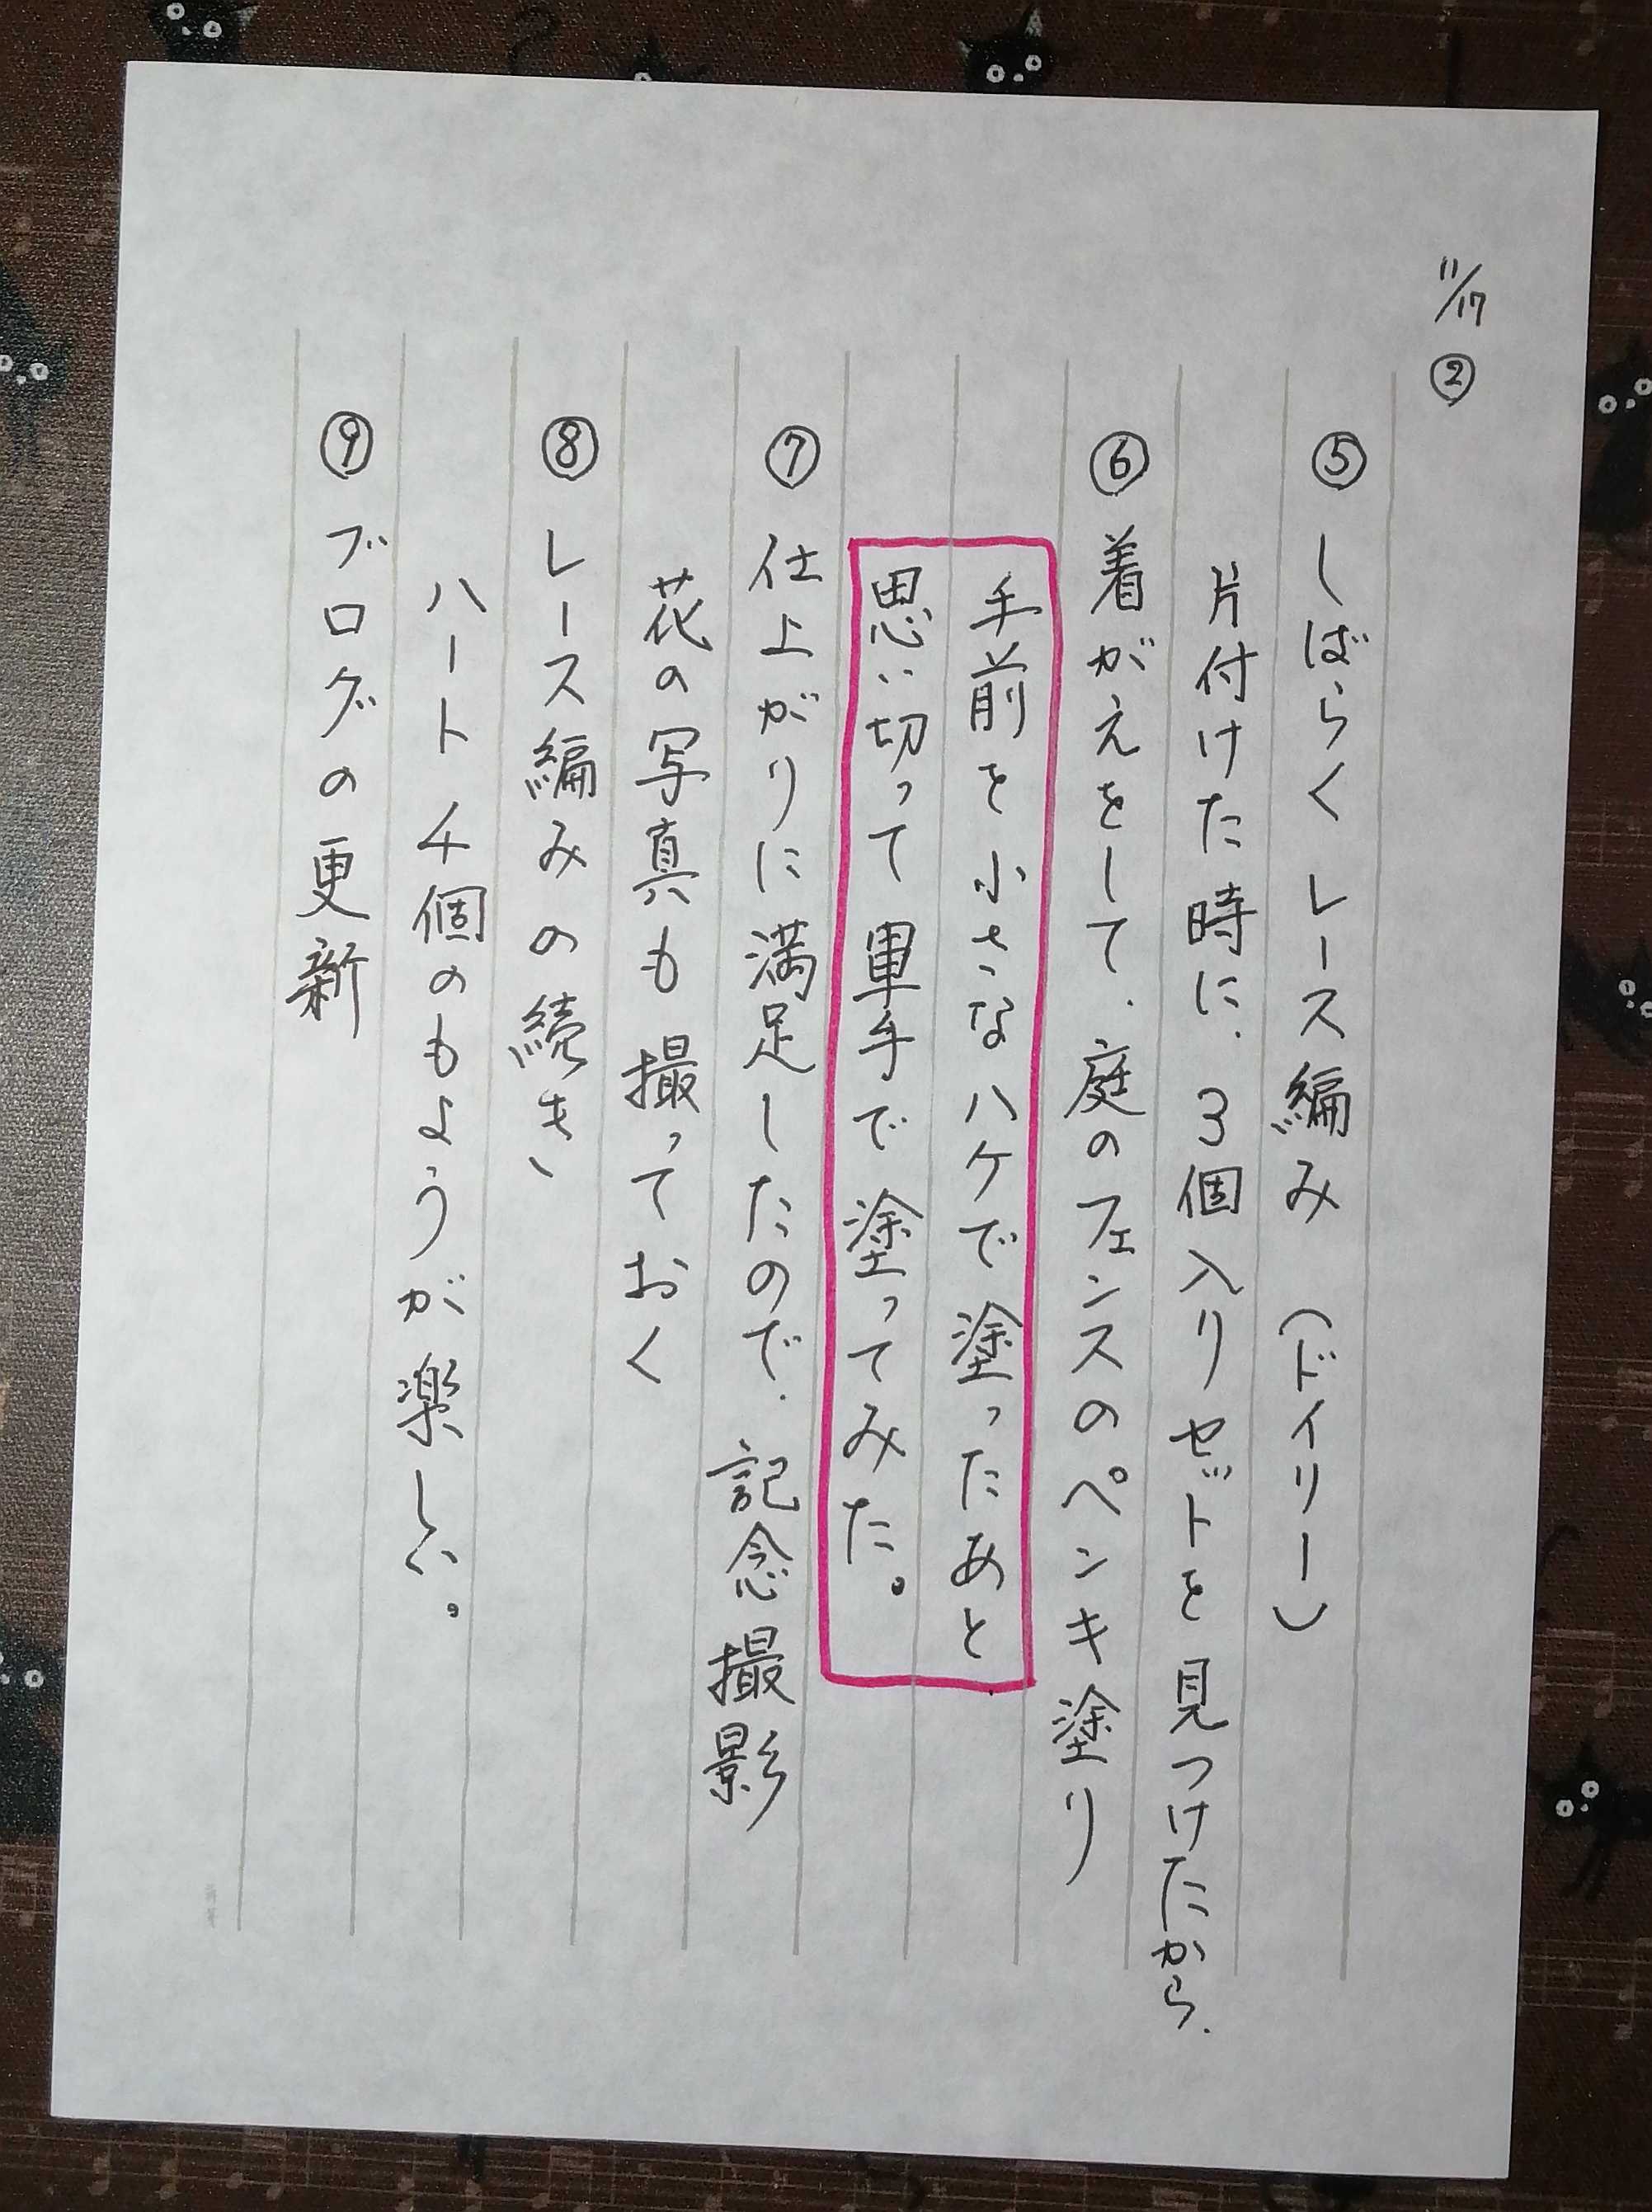 11/17 ②
⑤ しばらく レース編み (ドイリー)
片付けた時に、3個入りセットを見つけたから、
⑥ 着がえをして、庭のフェンスのペンキ塗り
手前を小さなハケで塗ったあと
思い切って軍手で塗ってみた。
⑦ 仕上がりに満足したので、記念撮影
花の写真も撮っておく
⑧ レース編みの続き、
ハート4個のもようが楽しい。
⑨ ブログの更新